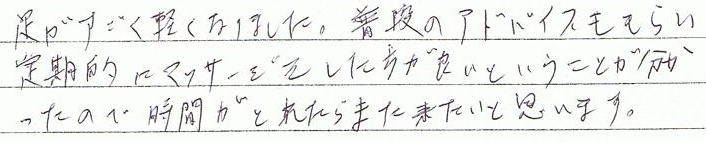 足がすごく軽くなりました。普段のアドバイスももらい
定期的にマッサージをした方が良いということが分か
ったので時間がとれたらまた来たいと思います。